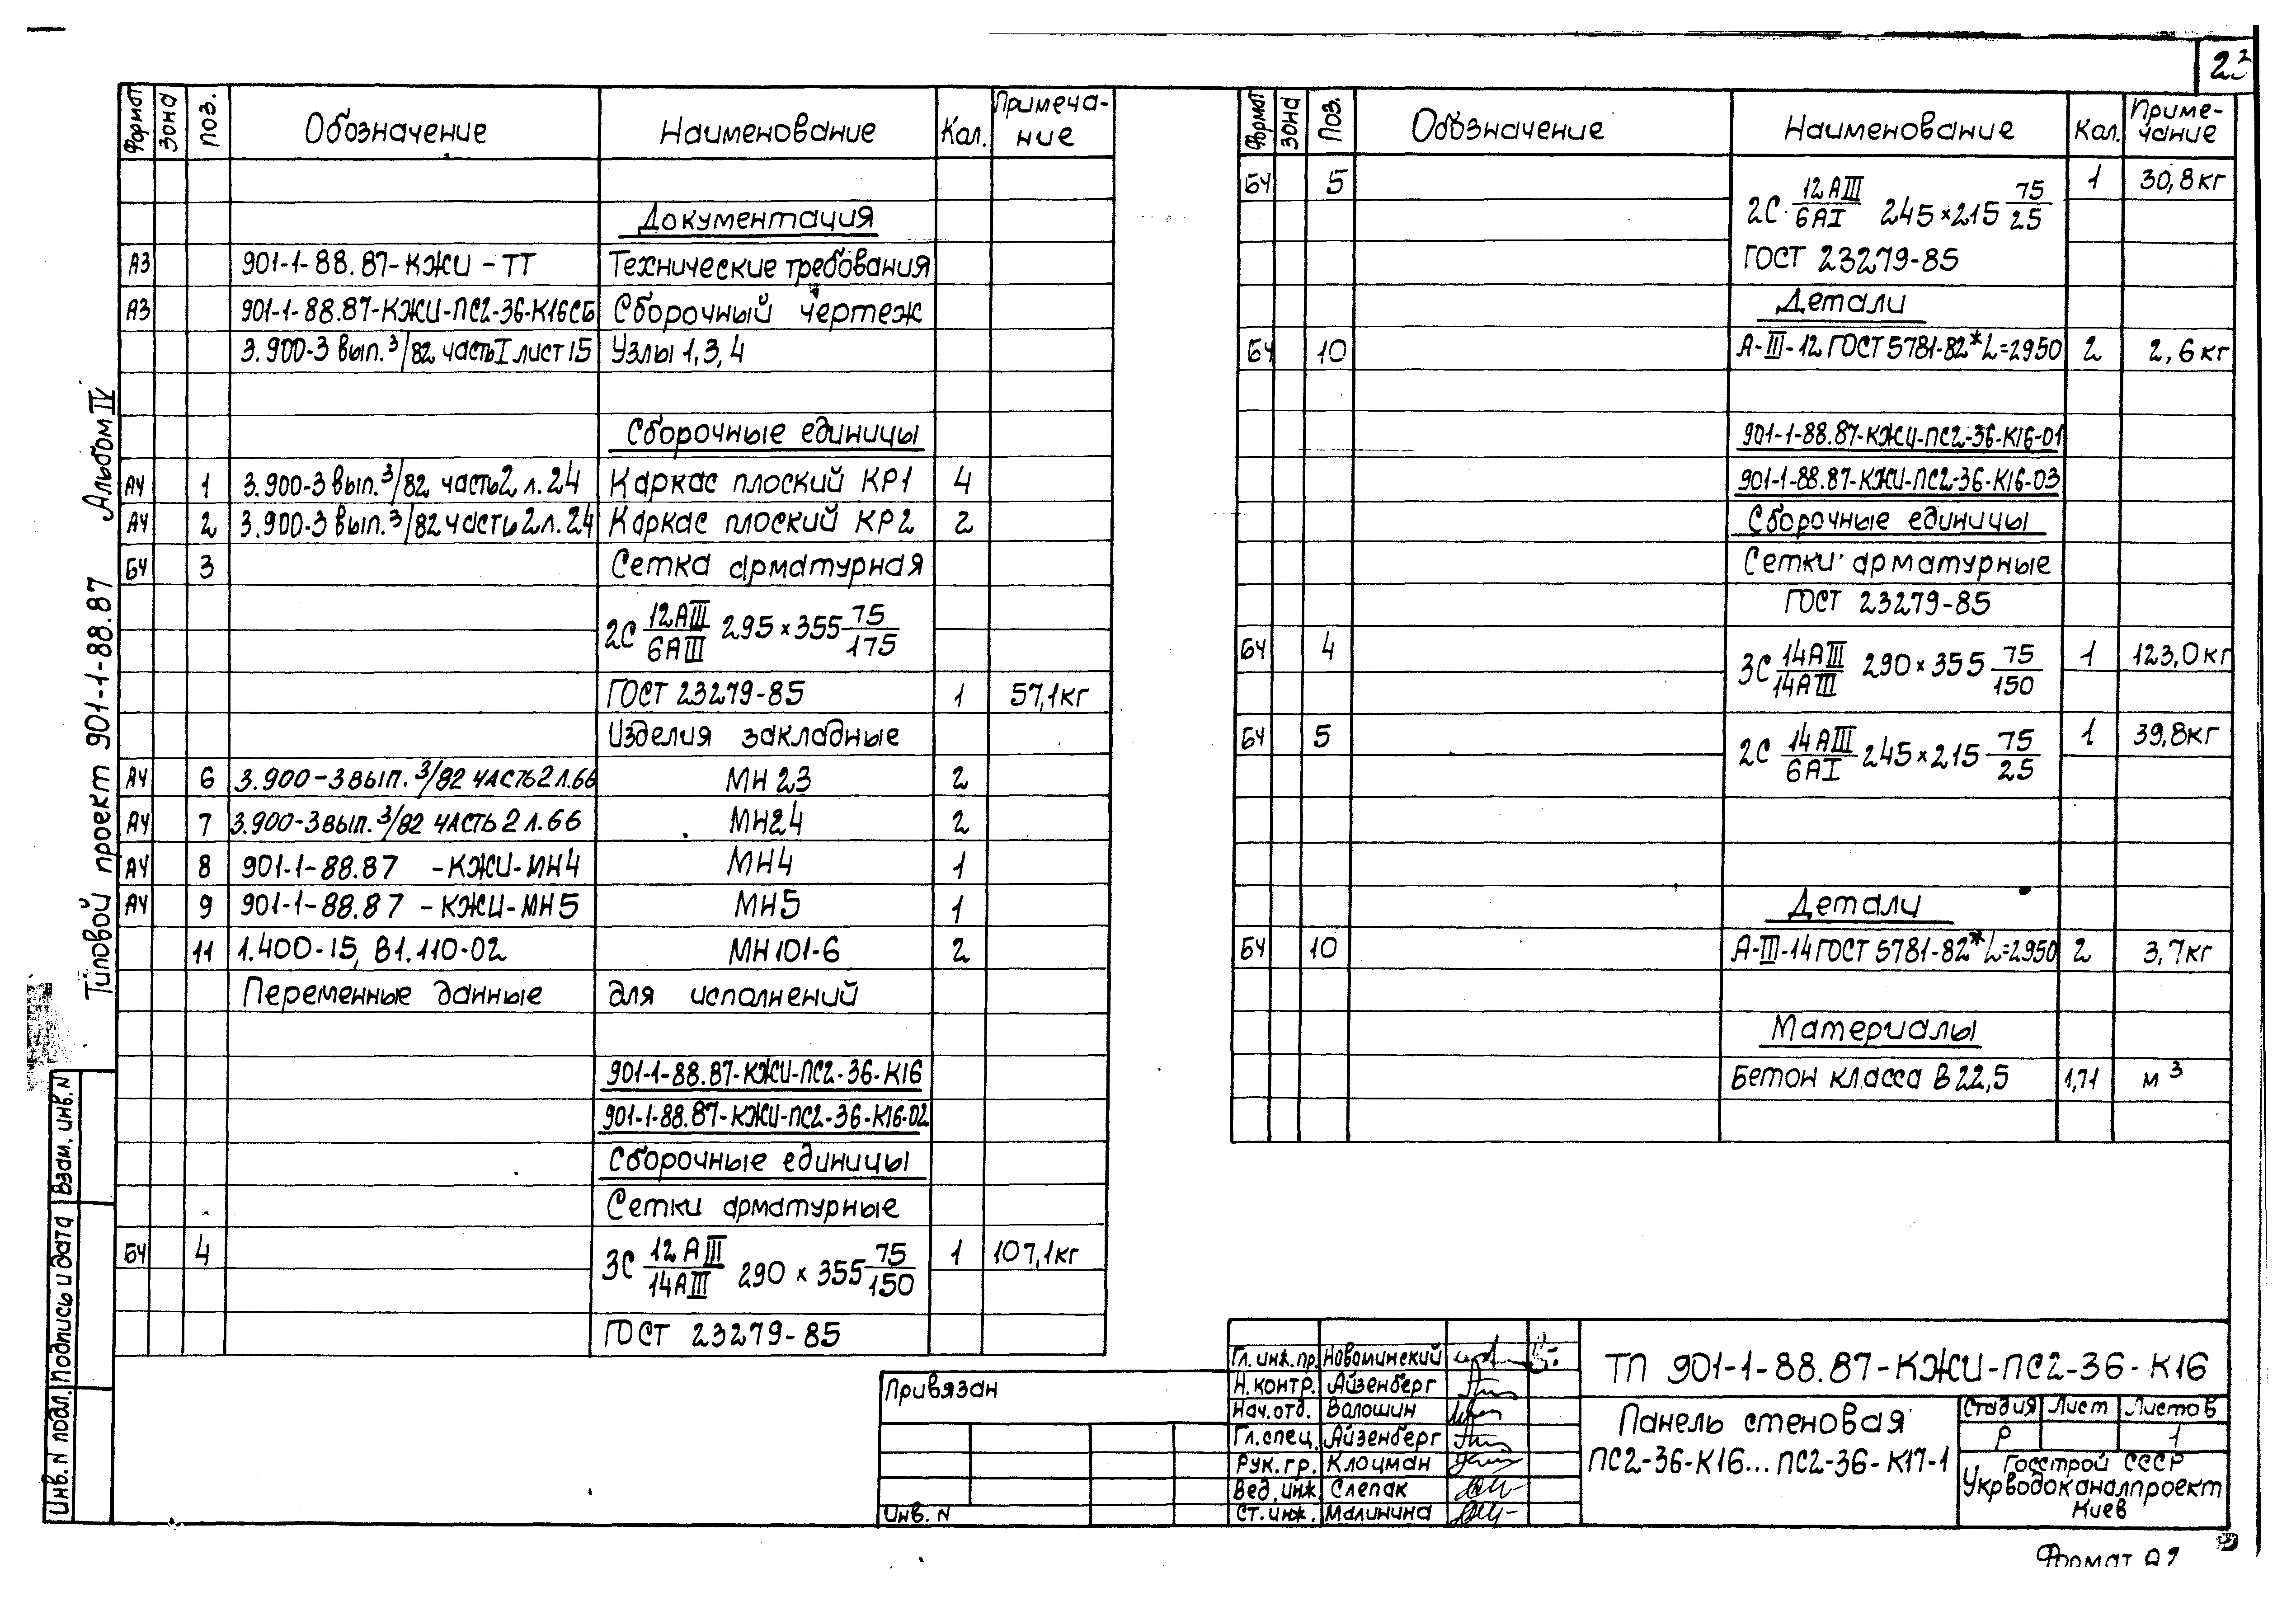 Формат Зона Поз. Обозначение Наименование Кол. Примеча-
ние
Документация
А3 901-1-88.87-КЖИ-ТТ Технические требования
А3 901-1-88.87-КЖИ-ПС2-36-К16СБ Сборочный чертеж
3.900-3 вып.3/82 часть I лист 15 Узлы 1,3,4
Сборочные единицы
А4 1 3.900-3 вып.3/82 часть 2 л.24 Каркас плоский КР1 4
А4 2 3.900-3 вып.3/82 часть 2 л.24 Каркас плоский КР2 2
БЧ 3 Сетка арматурная
2С 12АIII/6АIII 295×355 75/175
ГОСТ 23279-85 1 57,1кг
Изделия закладные
А4 6 3.900-3 вып.3/82 часть 2 л.66 МН23 2
А4 7 3.900-3 вып.3/82 часть 2 л.66 МН24 2
А4 8 901-1-88.87 -КЖИ-МН4 МН4 1
А4 9 901-1-88.87 -КЖИ-МН5 МН5 1
11 1.400-15, В1.110-02 МН101-6 2
Переменные данные для исполнений
901-1-88.87-КЖИ-ПС2-36-К16
901-1-88.87-КЖИ-ПС2-36-К16-02
Сборочные единицы
Сетки арматурные
БЧ 4 3С 12АIII/14АIII 290×355 75/150 1 107,1кг
ГОСТ 23279-85
Формат Зона Поз. Обозначение Наименование Кол. Приме-
чание
БЧ 5 2С 12АIII/6АI 245×215 75/25 1 30,8кг
ГОСТ 23279-85
Детали
БЧ 10 А-III-12 ГОСТ 5781-82* L=2950 2 2,6кг
901-1-88.87-КЖИ-ПС2-36-К16-01
901-1-88.87-КЖИ-ПС2-36-К16-03
Сборочные единицы
Сетки арматурные
ГОСТ 23279-85
БЧ 4 3С 14АIII/14АIII 290×355 75/150 1 123,0кг
БЧ 5 2С 14АIII/6АI 245×215 75/25 1 39,8кг
Детали
БЧ 10 А-III-14 ГОСТ 5781-82* L=2950 2 3,7кг
Материалы
Бетон класса В22,5 1,71 м3
Типовой проект 901-1-88.87 Альбом IV
Инв. N подл. Подпись и дата Взам. инв. N
Привязан
Инв. N
Гл. инж. пр. Новоминский
Н. контр. Айзенберг
Нач. отд. Волошин
Гл. спец. Айзенберг
Рук. гр. Клоцман
Вед. инж. Слепак
Ст. инж. Малинина
ТП 901-1-88.87-КЖИ-ПС2-36-К16
Панель стеновая
ПС2-36-К16...ПС2-36-К17-1
Стадия Лист Листов
Р 1
Госстрой СССР
Укрводоканалпроект
Киев
Формат А2